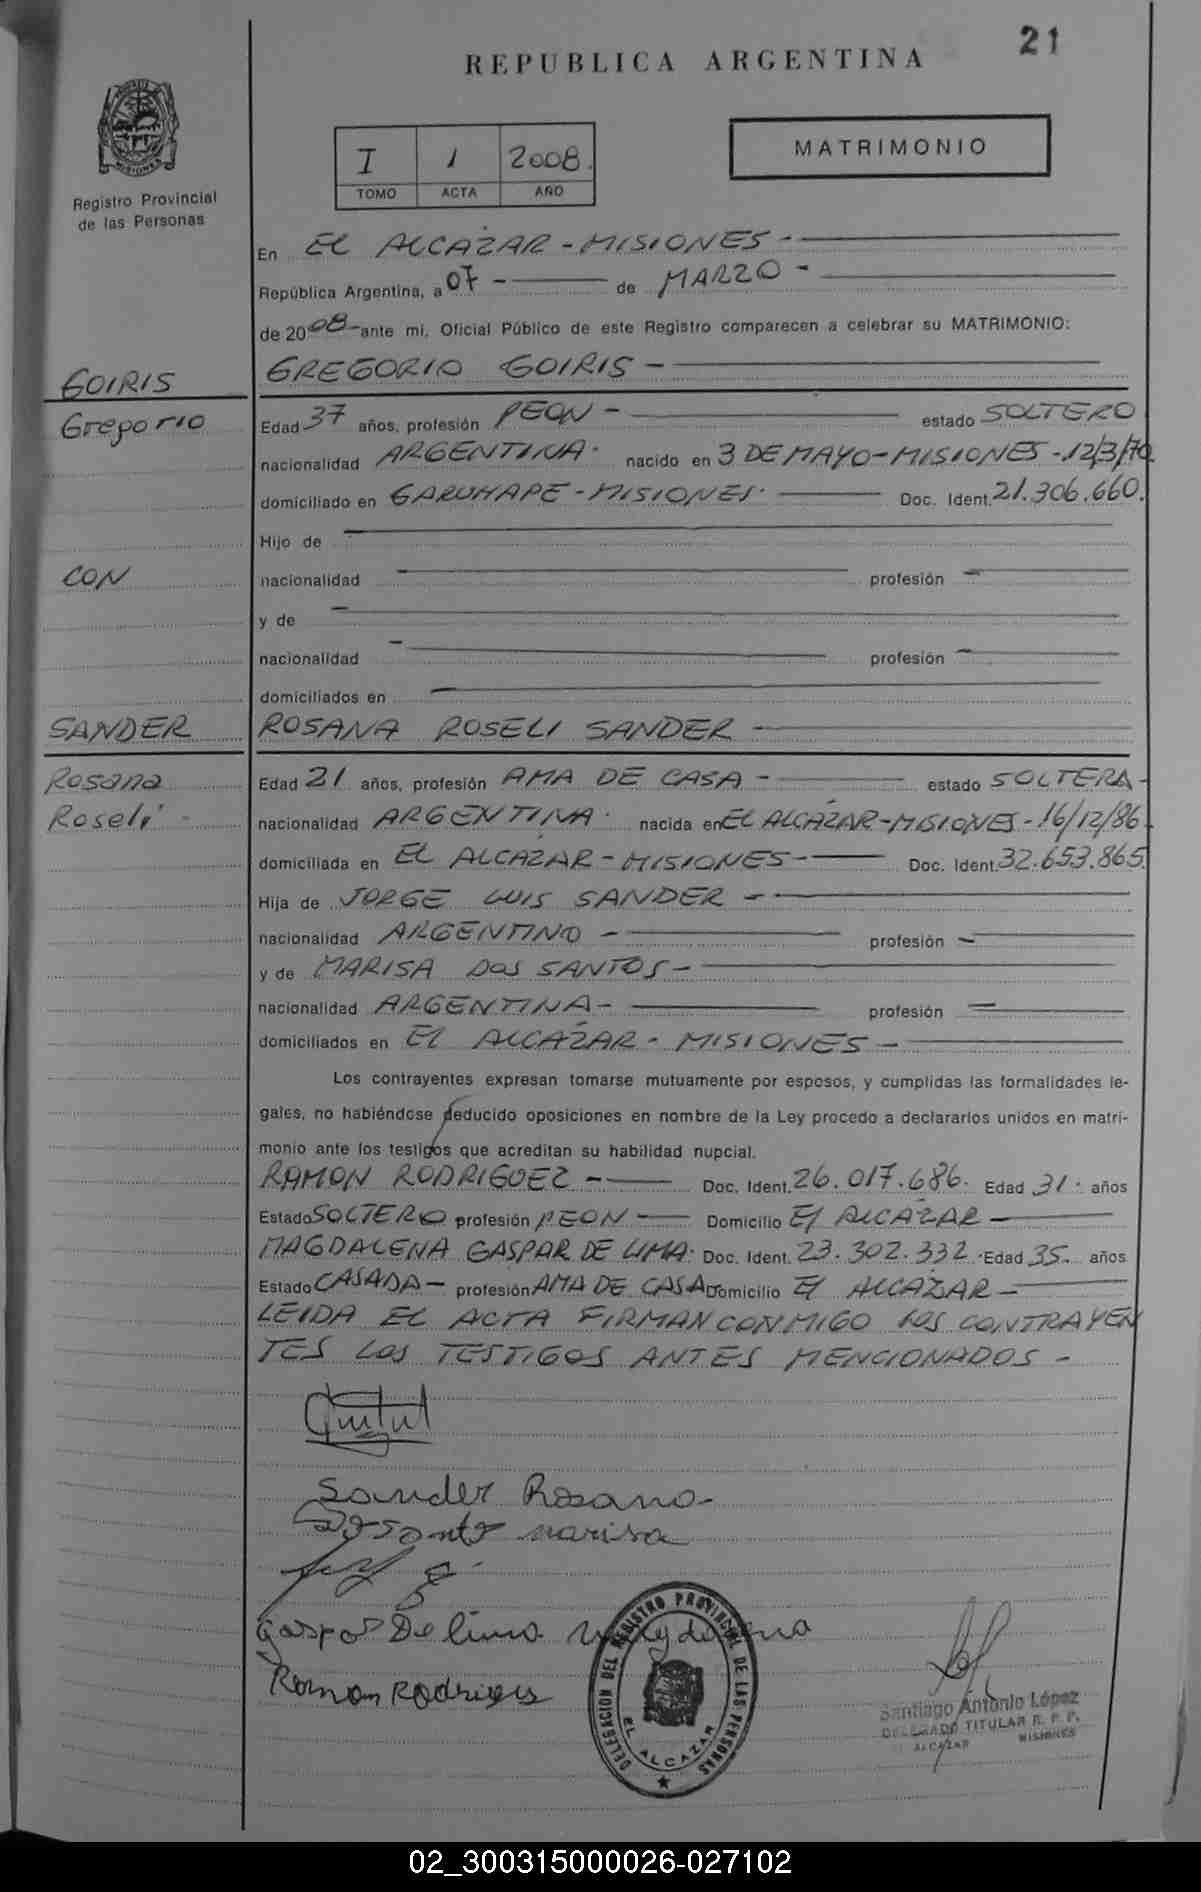 21
REPUBLICA ARGENTINA
MISIONES
Registro Provincial
de las Personas
I 1 2008.
TOMO ACTA AÑO
MATRIMONIO
En EL ALCAZAR - MISIONES -
República Argentina, a 07 - de MARZO -
de 2008 - ante mi, Oficial Público de este Registro comparecen a celebrar su MATRIMONIO:
GOIRIS
GREGORIO GOIRIS -
Gregorio
Edad 37 años, profesión PEON - estado SOLTERO
nacionalidad ARGENTINA. nacido en 3 DE MAYO - MISIONES - 12/3/70
domiciliado en GARUHAPE - MISIONES. Doc. Ident. 21.306.660.
Hijo de
CON
nacionalidad - profesión -
y de -
nacionalidad - profesión -
domiciliados en -
SANDER
ROSANA ROSELI SANDER -
Rosana
Edad 21 años, profesión AMA DE CASA - estado SOLTERA -
Roseli -
nacionalidad ARGENTINA. nacida en EL ALCAZAR - MISIONES - 16/12/86.
domiciliada en EL ALCAZAR - MISIONES - Doc. Ident. 32.653.865.
Hija de JORGE LUIS SANDER -
nacionalidad ARGENTINO - profesión -
y de MARISA DOS SANTOS -
nacionalidad ARGENTINA - profesión -
domiciliados en El ALCAZAR - MISIONES -
Los contrayentes expresan tomarse mutuamente por esposos, y cumplidas las formalidades le-
gales, no habiéndose deducido oposiciones en nombre de la Ley procedo a declararlos unidos en matri-
monio ante los testigos que acreditan su habilidad nupcial.
RAMON RODRIGUEZ - Doc. Ident. 26.017.686. Edad 31. años
Estado SOLTERO profesión PEON - Domicilio El ALCAZAR -
MAGDALENA GASPAR DE LIMA. Doc. Ident. 23.302.332. Edad 35. años
Estado CASADA - profesión AMA DE CASA Domicilio El ALCAZAR -
LEIDA EL ACTA FIRMAN CONMIGO LOS CONTRAYEN
TES LOS TESTIGOS ANTES MENCIONADOS -
Sander Rosana
Dos Santos marisa
Gaspar De lima Magdalena
Ramon Rodrigues
DELEGACION DEL REGISTRO PROVINCIAL DE LAS PERSONAS
EL ALCAZAR
Santiago Antonio López
DELEGADO TITULAR R. P. P.
ALCAZAR MISIONES
02_300315000026-027102